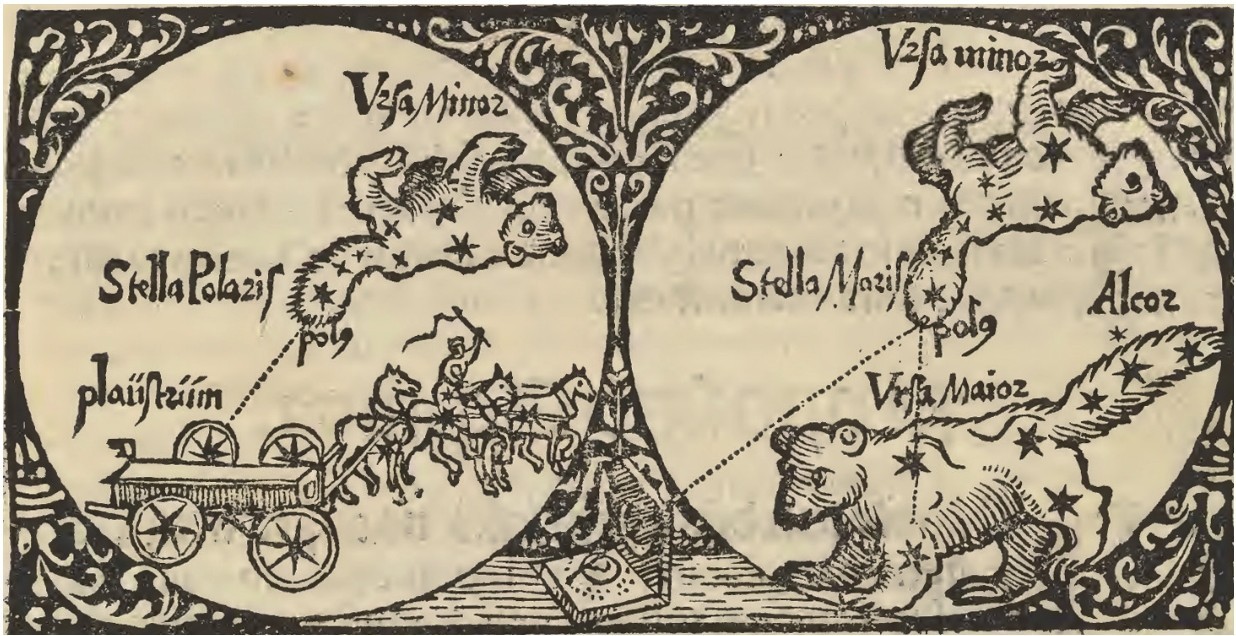 Vrſa Minor
Stella Polariſ
polꝰ
plaüſtrüm
Vrſa minor
Stella Mariſ
polꝰ
Alcor
Vrſa Maior